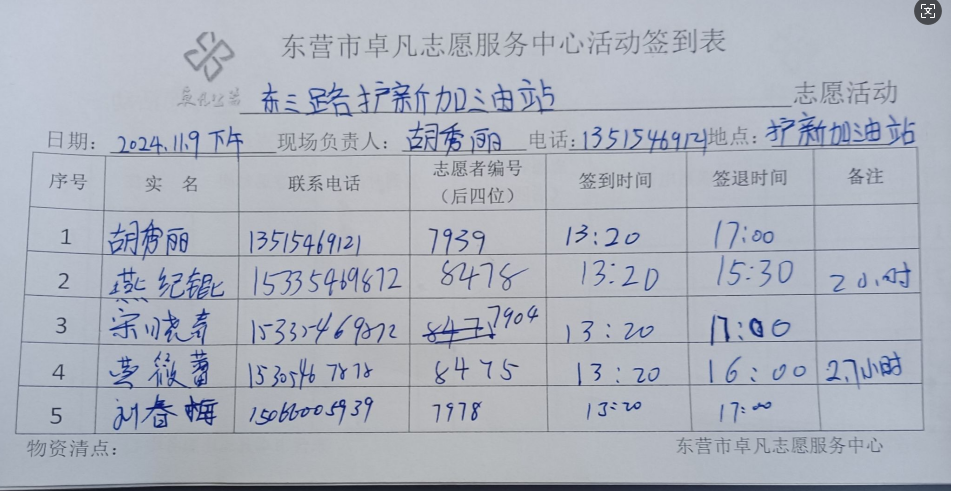 东营市卓凡志愿服务中心活动签到表
卓凡公益
东三路护新加油站 志愿活动
日期：2024.11.9下午 现场负责人：胡秀丽 电话：13515469121 地点：护新加油站
序号 实 名 联系电话 志愿者编号（后四位） 签到时间 签退时间 备注
1 胡秀丽 13515469121 7939 13:20 17:00
2 燕纪锟 15335469872 8478 13:20 15:30 2小时
3 宋晓奇 15335469872 7904 13:20 17:00
4 燕筱蕾 15305467878 8475 13:20 16:00 2.7小时
5 刘春梅 15066005939 7978 13:20 17:00
物资清点： 东营市卓凡志愿服务中心